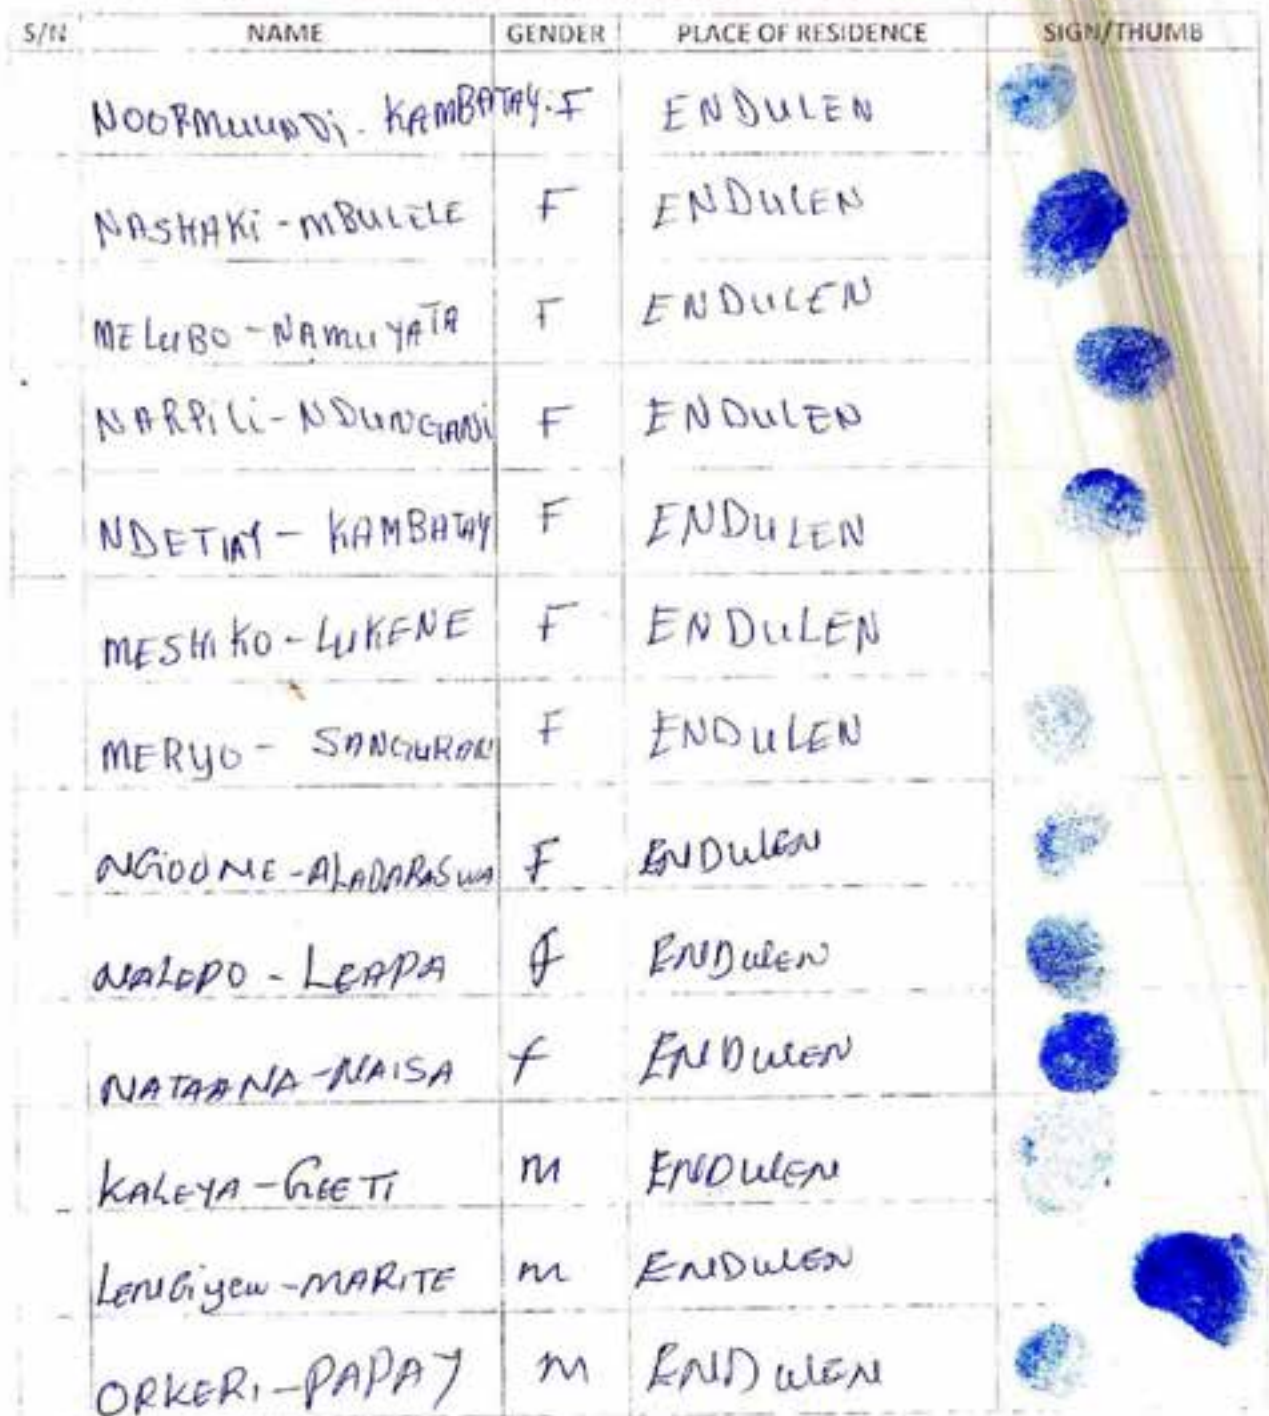 S/N NAME GENDER PLACE OF RESIDENCE SIGN/THUMB
NOORMUUNDi. KAMBATAY. F ENDULEN
NASHAKi - MBULELE F ENDULEN
MELUBO - NAMUYATA F ENDULEN
NARPiLi - NDUNGANi F ENDULEN
NDETIAY - KAMBATAY F ENDULEN
MESHIKO - LUKENE F ENDULEN
MERYO - F ENDULEN
F ENDULEN
- LEAPA F ENDULEN
NATAANA - NAISA f ENDULEN
KALEYA - GEETI M ENDULEN
- MARITE M ENDULEN
ORKERI - PAPAY M ENDULEN